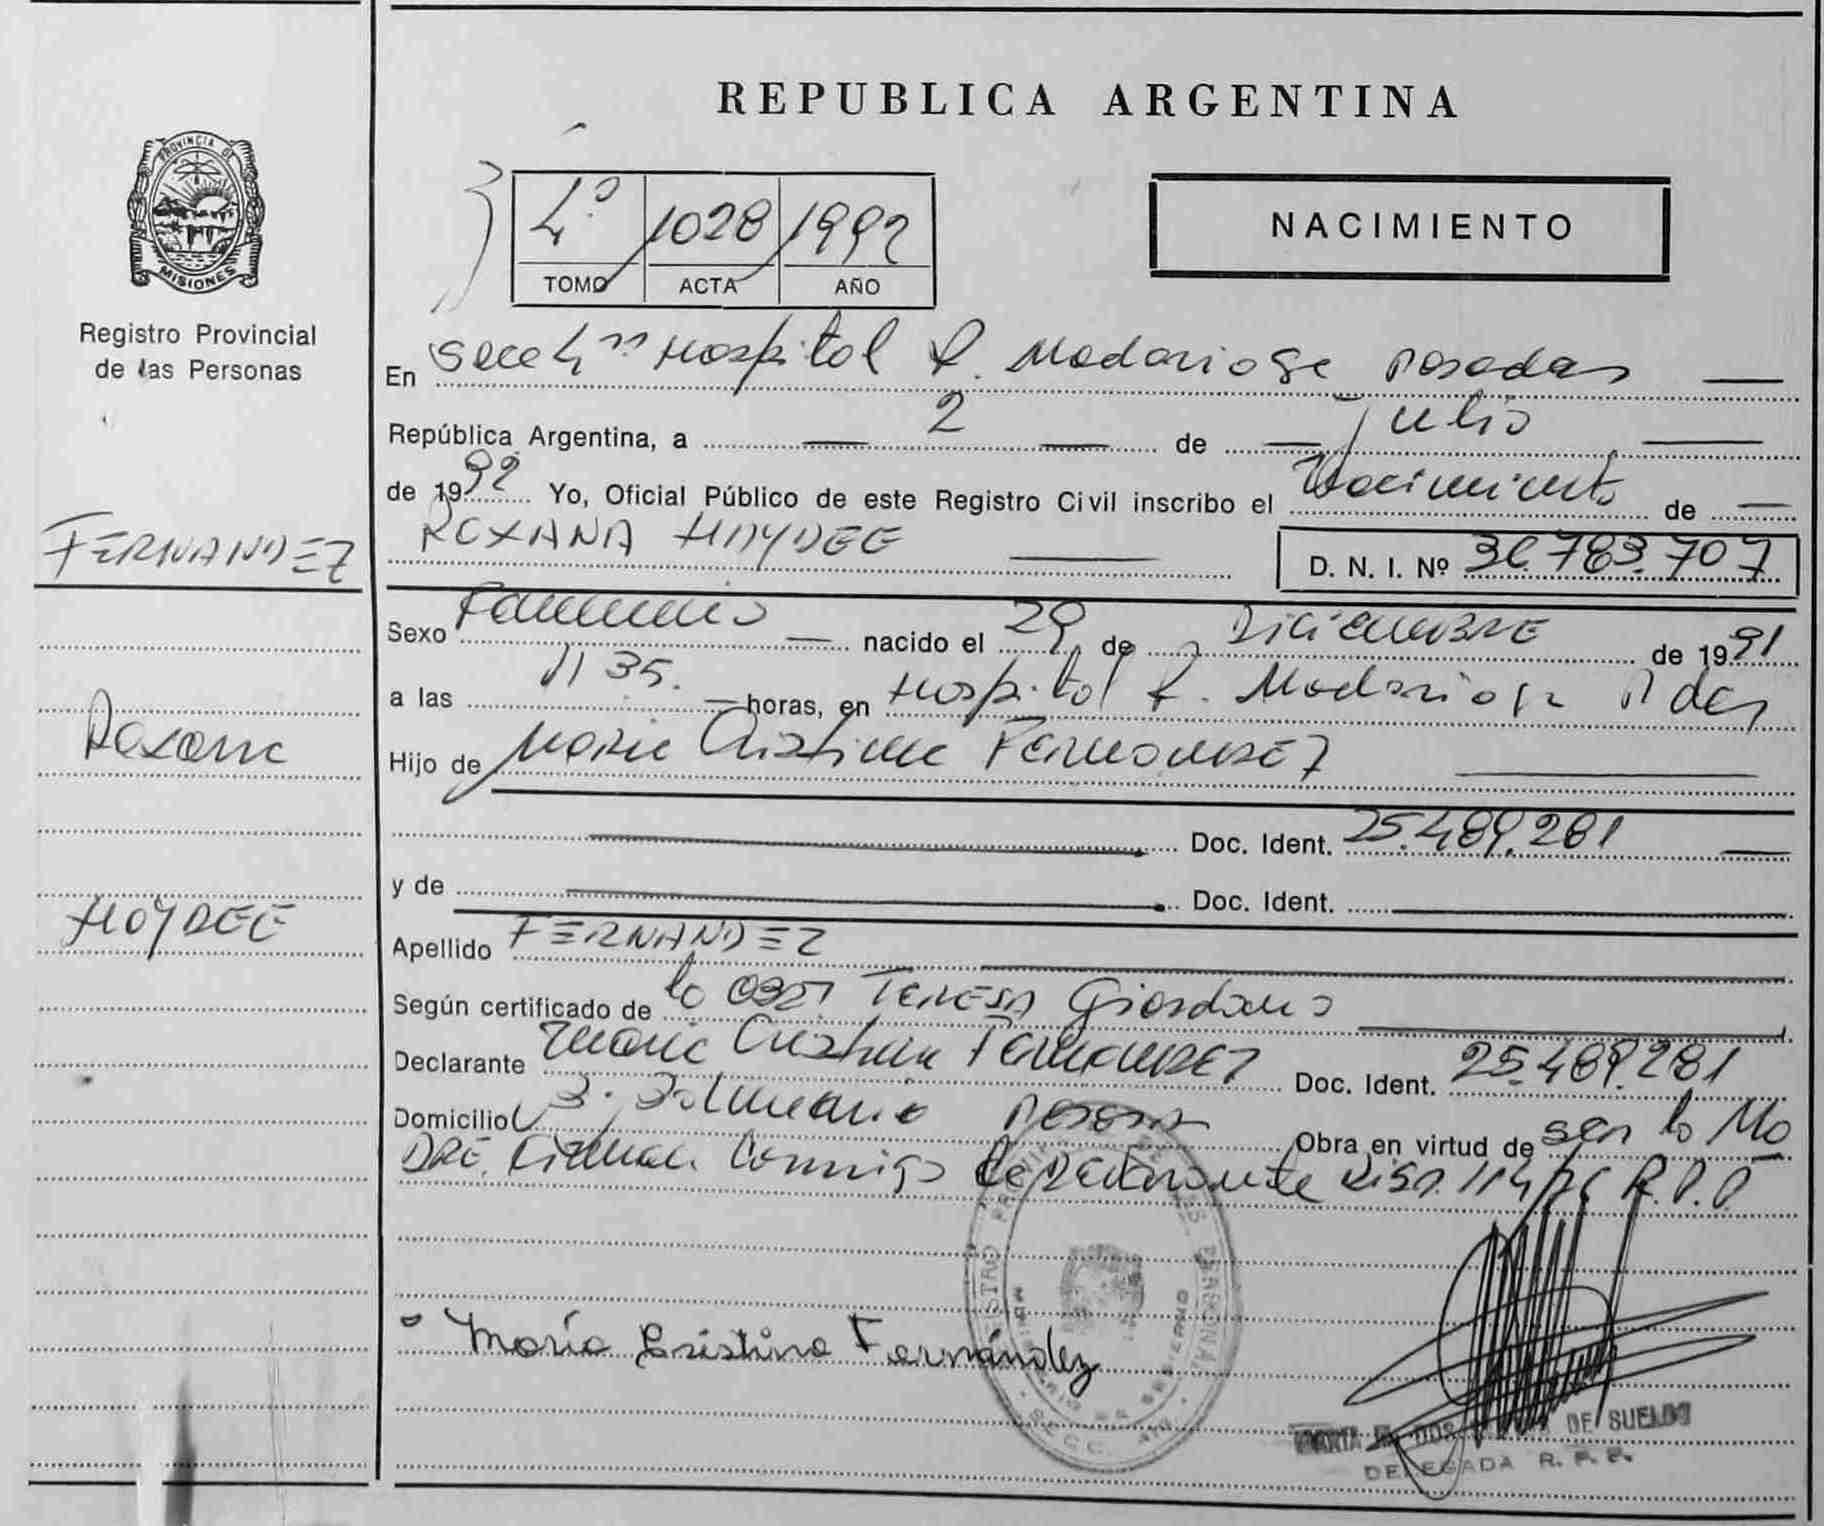 REPUBLICA ARGENTINA
PROVINCIA D
MISIONES
Registro Provincial
de las Personas
4º 1028 1992
TOMO ACTA AÑO
NACIMIENTO
En Secc 4ª Hospital R. Madariaga Posadas
República Argentina, a 2 de Julio
de 1992 Yo, Oficial Público de este Registro Civil inscribo el Nacimiento de
ROXANA HAYDEE
D. N. I. Nº 36.783.707
FERNANDEZ
Roxana
HAYDEE
Sexo Femenino nacido el 29 de Diciembre de 1991
a las 11 35. horas, en Hospital R. Madariaga Pdas
Hijo de Maria Cristina FERNANDEZ
Doc. Ident. 25.489.281
y de Doc. Ident.
Apellido FERNANDEZ
Según certificado de la OBST TERESA Giordano
Declarante Maria Cristina FERNANDEZ Doc. Ident. 25.489.281
Domicilio Posadas Obra en virtud de ser la Ma
DRE. Firman Conmigo la Declarante Disp. 114/76 R.P.P
María Cristina Fernández
DE SUELDO
DELEGADA R. P. P.